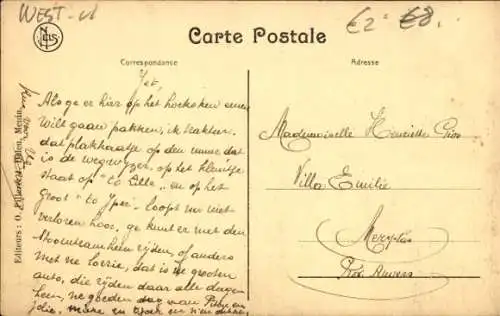 WEST-Vl
€2
€8.
Carte Postale
Correspondance
Adresse
Jet,
Als ge er hier op het hoekeken eenen
Wilt gaan pakken, ik trakteer.
dat plakkaatje op den muur dat
is de wegwyzer, op het kleintje
staat op "to Lille" en op het
groot "to Yper" loopt nu niet
verloren hoor, ge kunt er met den
stoomtram heen rijden, of anders
met ne lorrie, dat is ne grooten
auto, die rijden daar alle dagen
heen, ne goeden dag van Pier en
Mademoiselle Henriette
Villa Emilie
Merxplas
Prov. Anvers
Editeurs : O. Menin.